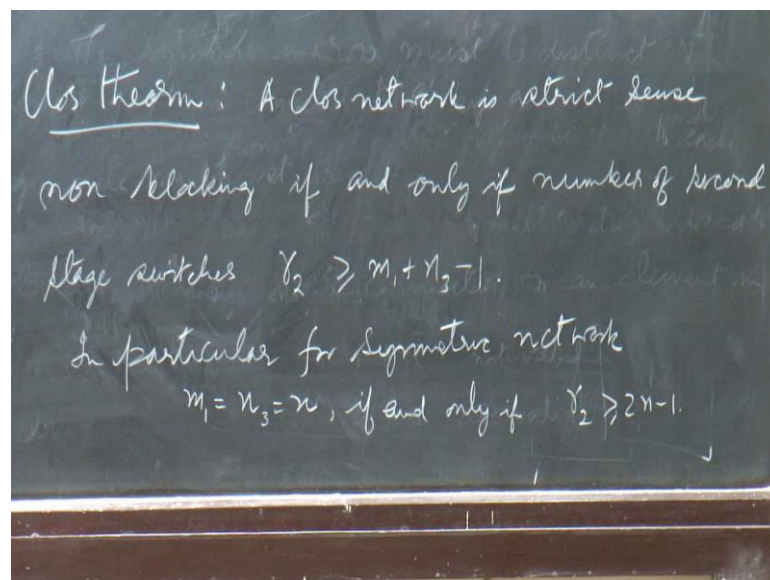 Clos theorem : A clos network is strict sense
non blocking if and only if number of second
stage switches γ₂ ⩾ m₁ + n₃ - 1.
In particular for symmetric network
m₁ = n₃ = n, if and only if γ₂ ⩾ 2n-1.